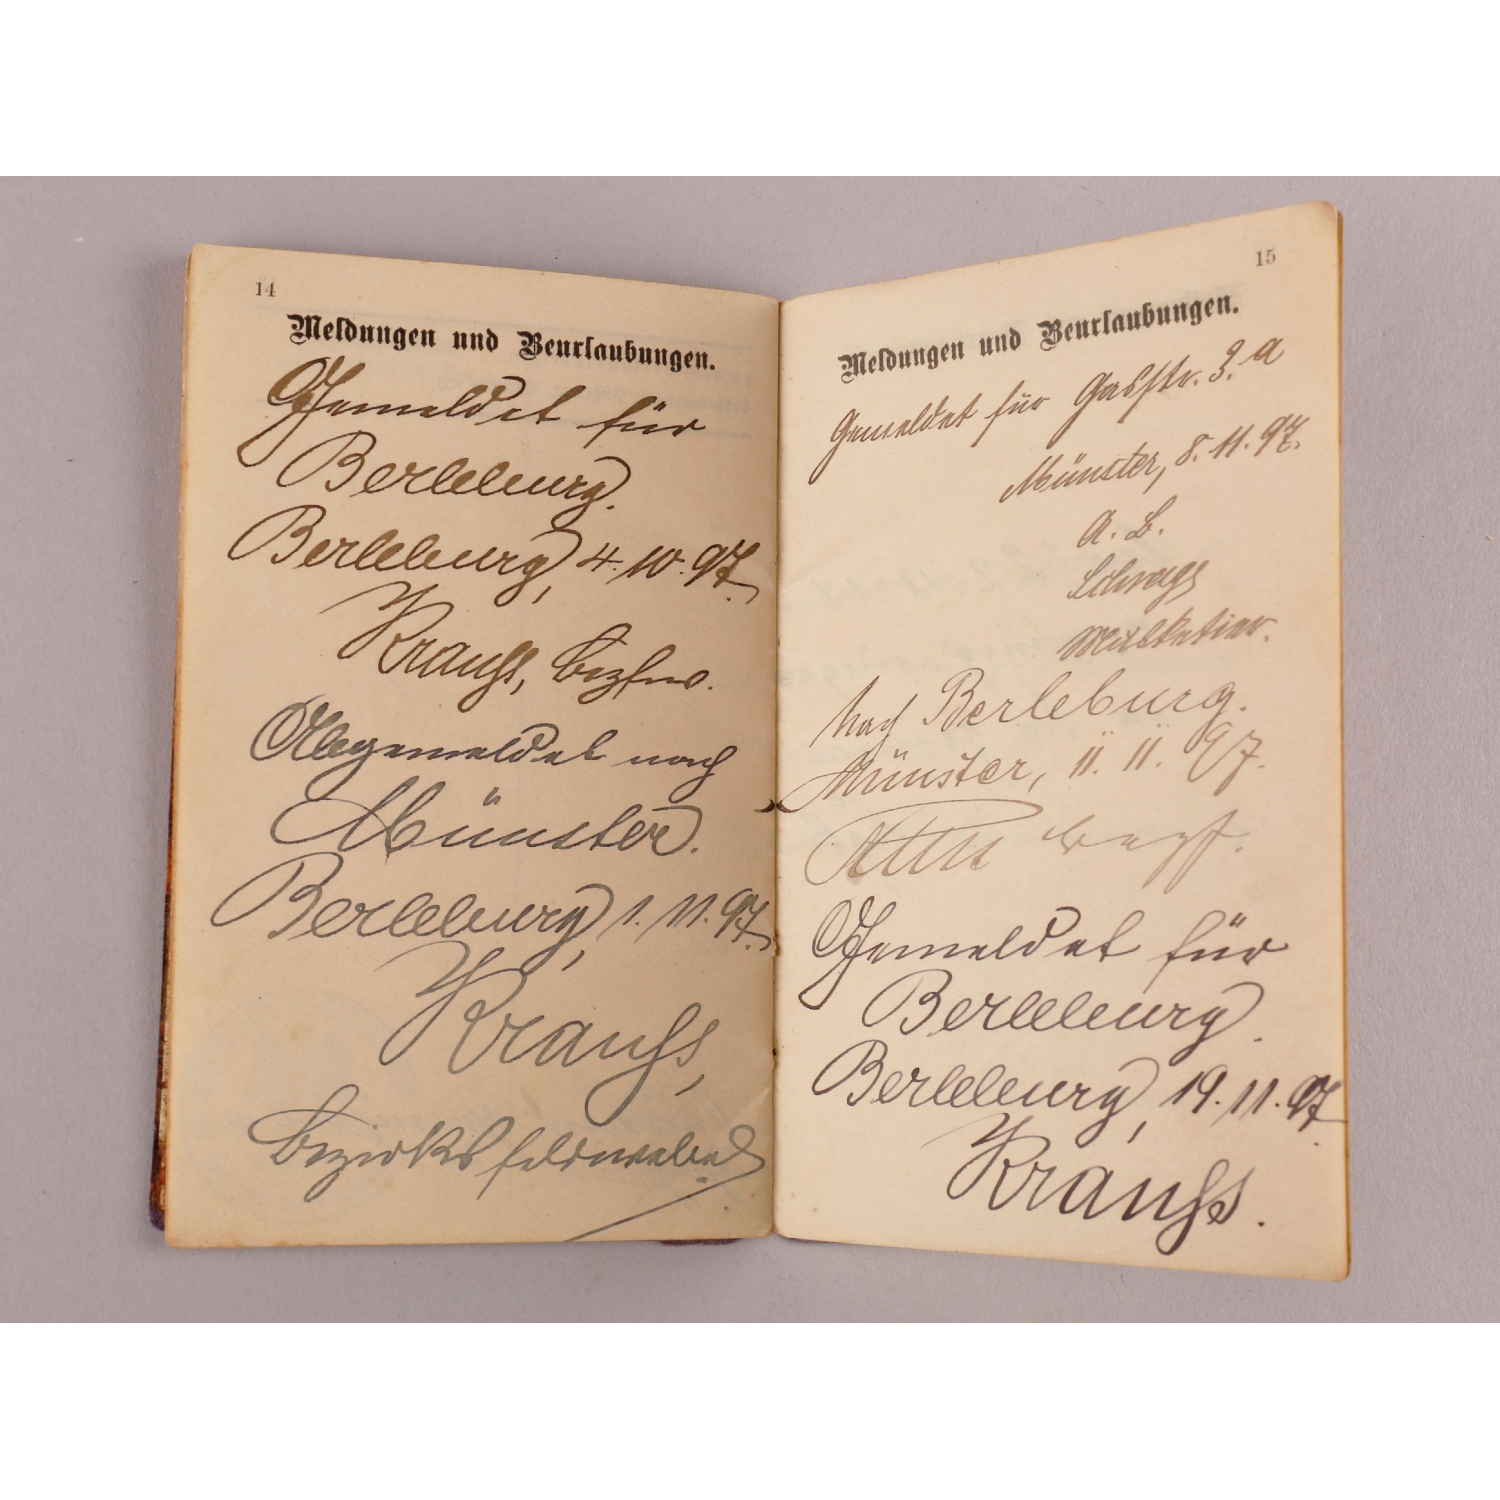 14
Meldungen und Beurlaubungen.
Gemeldet für
Berleburg.
Berleburg, 4. 10. 97.
Krauss, Bezfw.
Abgemeldet nach
Münster.
Berleburg, 1. 11. 97.
Krauss,
Bezirksfeldwebel
15
Meldungen und Beurlaubungen.
Gemeldet für Gasstr. 3. a
Münster, 8. 11. 97.
A. B.
Musketier.
Nach Berleburg.
Münster, 11. 11. 97.
Gemeldet für
Berleburg.
Berleburg, 19. 11. 97.
Krauss.